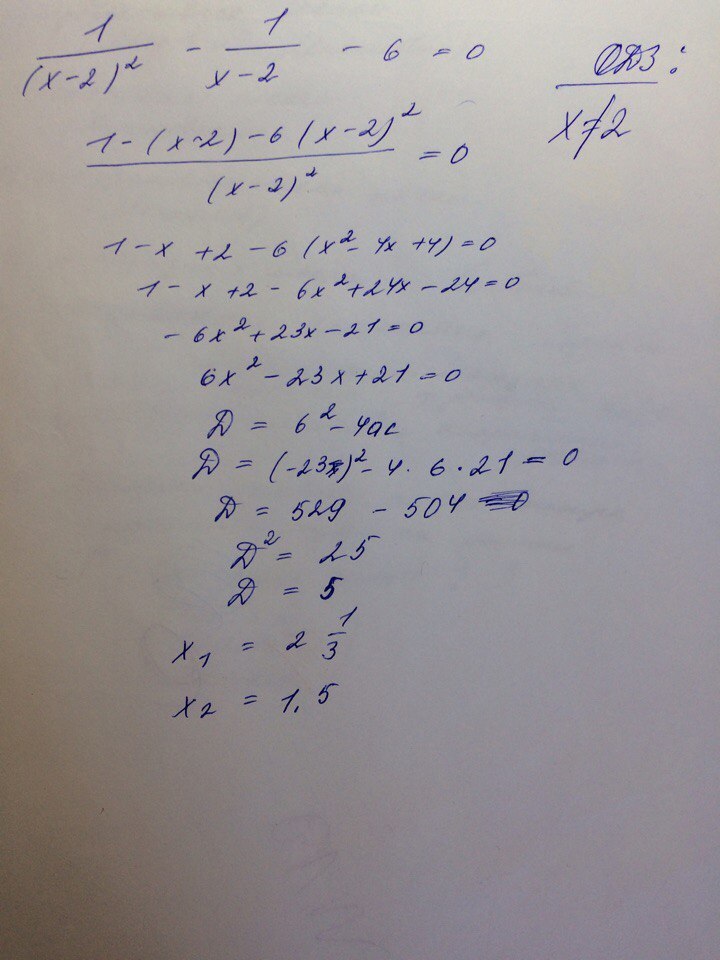 1/(x-2)² - 1/(x-2) - 6 = 0
ОДЗ:
x≠2
(1-(x-2)-6(x-2)²)/(x-2)² = 0
1-x+2-6(x²-4x+4)=0
1-x+2-6x²+24x-24=0
-6x²+23x-21=0
6x²-23x+21=0
D = b²-4ac
D = (-23)²-4·6·21=0
D = 529-504
D² = 25
D = 5
x₁ = 2 1/3
x₂ = 1.5